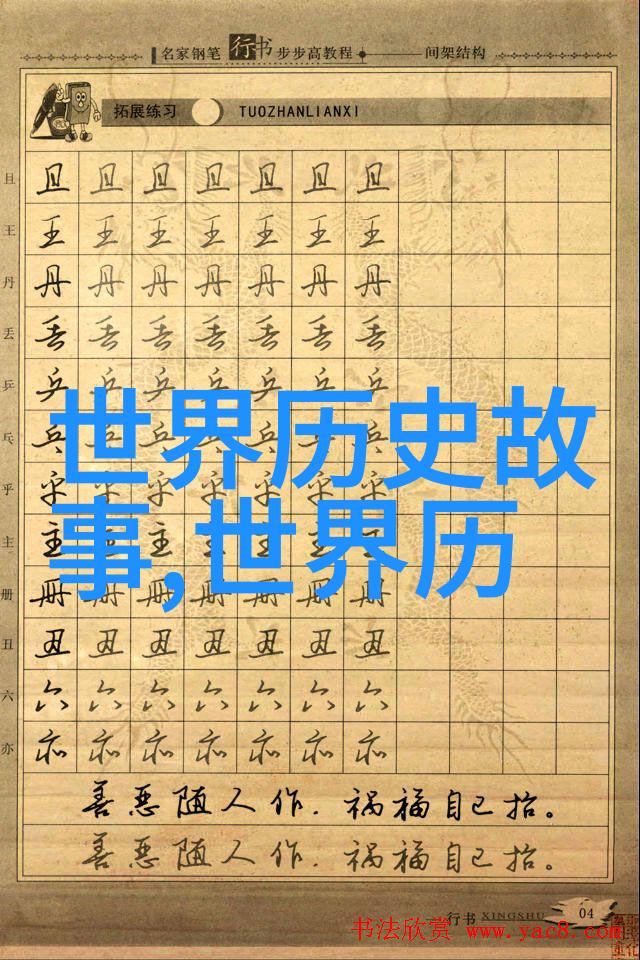 名家钢笔行书步步高教程 间架结构
拓展练习 TUOZHANLIANXI
且 且 且 且 且 且 且 且
王 王 王 王 王 王 王 王
丹 丹 丹 丹 丹 丹 丹 丹
丢 丢 丢 丢 丢 丢 丢 丢
乒 乒 乒 乒 乒 乒 乒 乒
世界历史故
乓 乓 乓 乓 乓 乓 乓 乓
乎 乎 乎 乎 乎 乎 乎 乎
主 主 主 主 主 主 主 主
事,世界历
册 册 册 册 册 册 册 册
丑 丑 丑 丑 丑 丑 丑 丑
六 六 六 六 六 六 六 六
亦 亦 亦 亦 亦 亦 亦 亦
善恶随人作.祸福自己招。
善恶随人作.祸福自己招。
行书 XINGSHU 04
书法欣赏 www.yac8.com